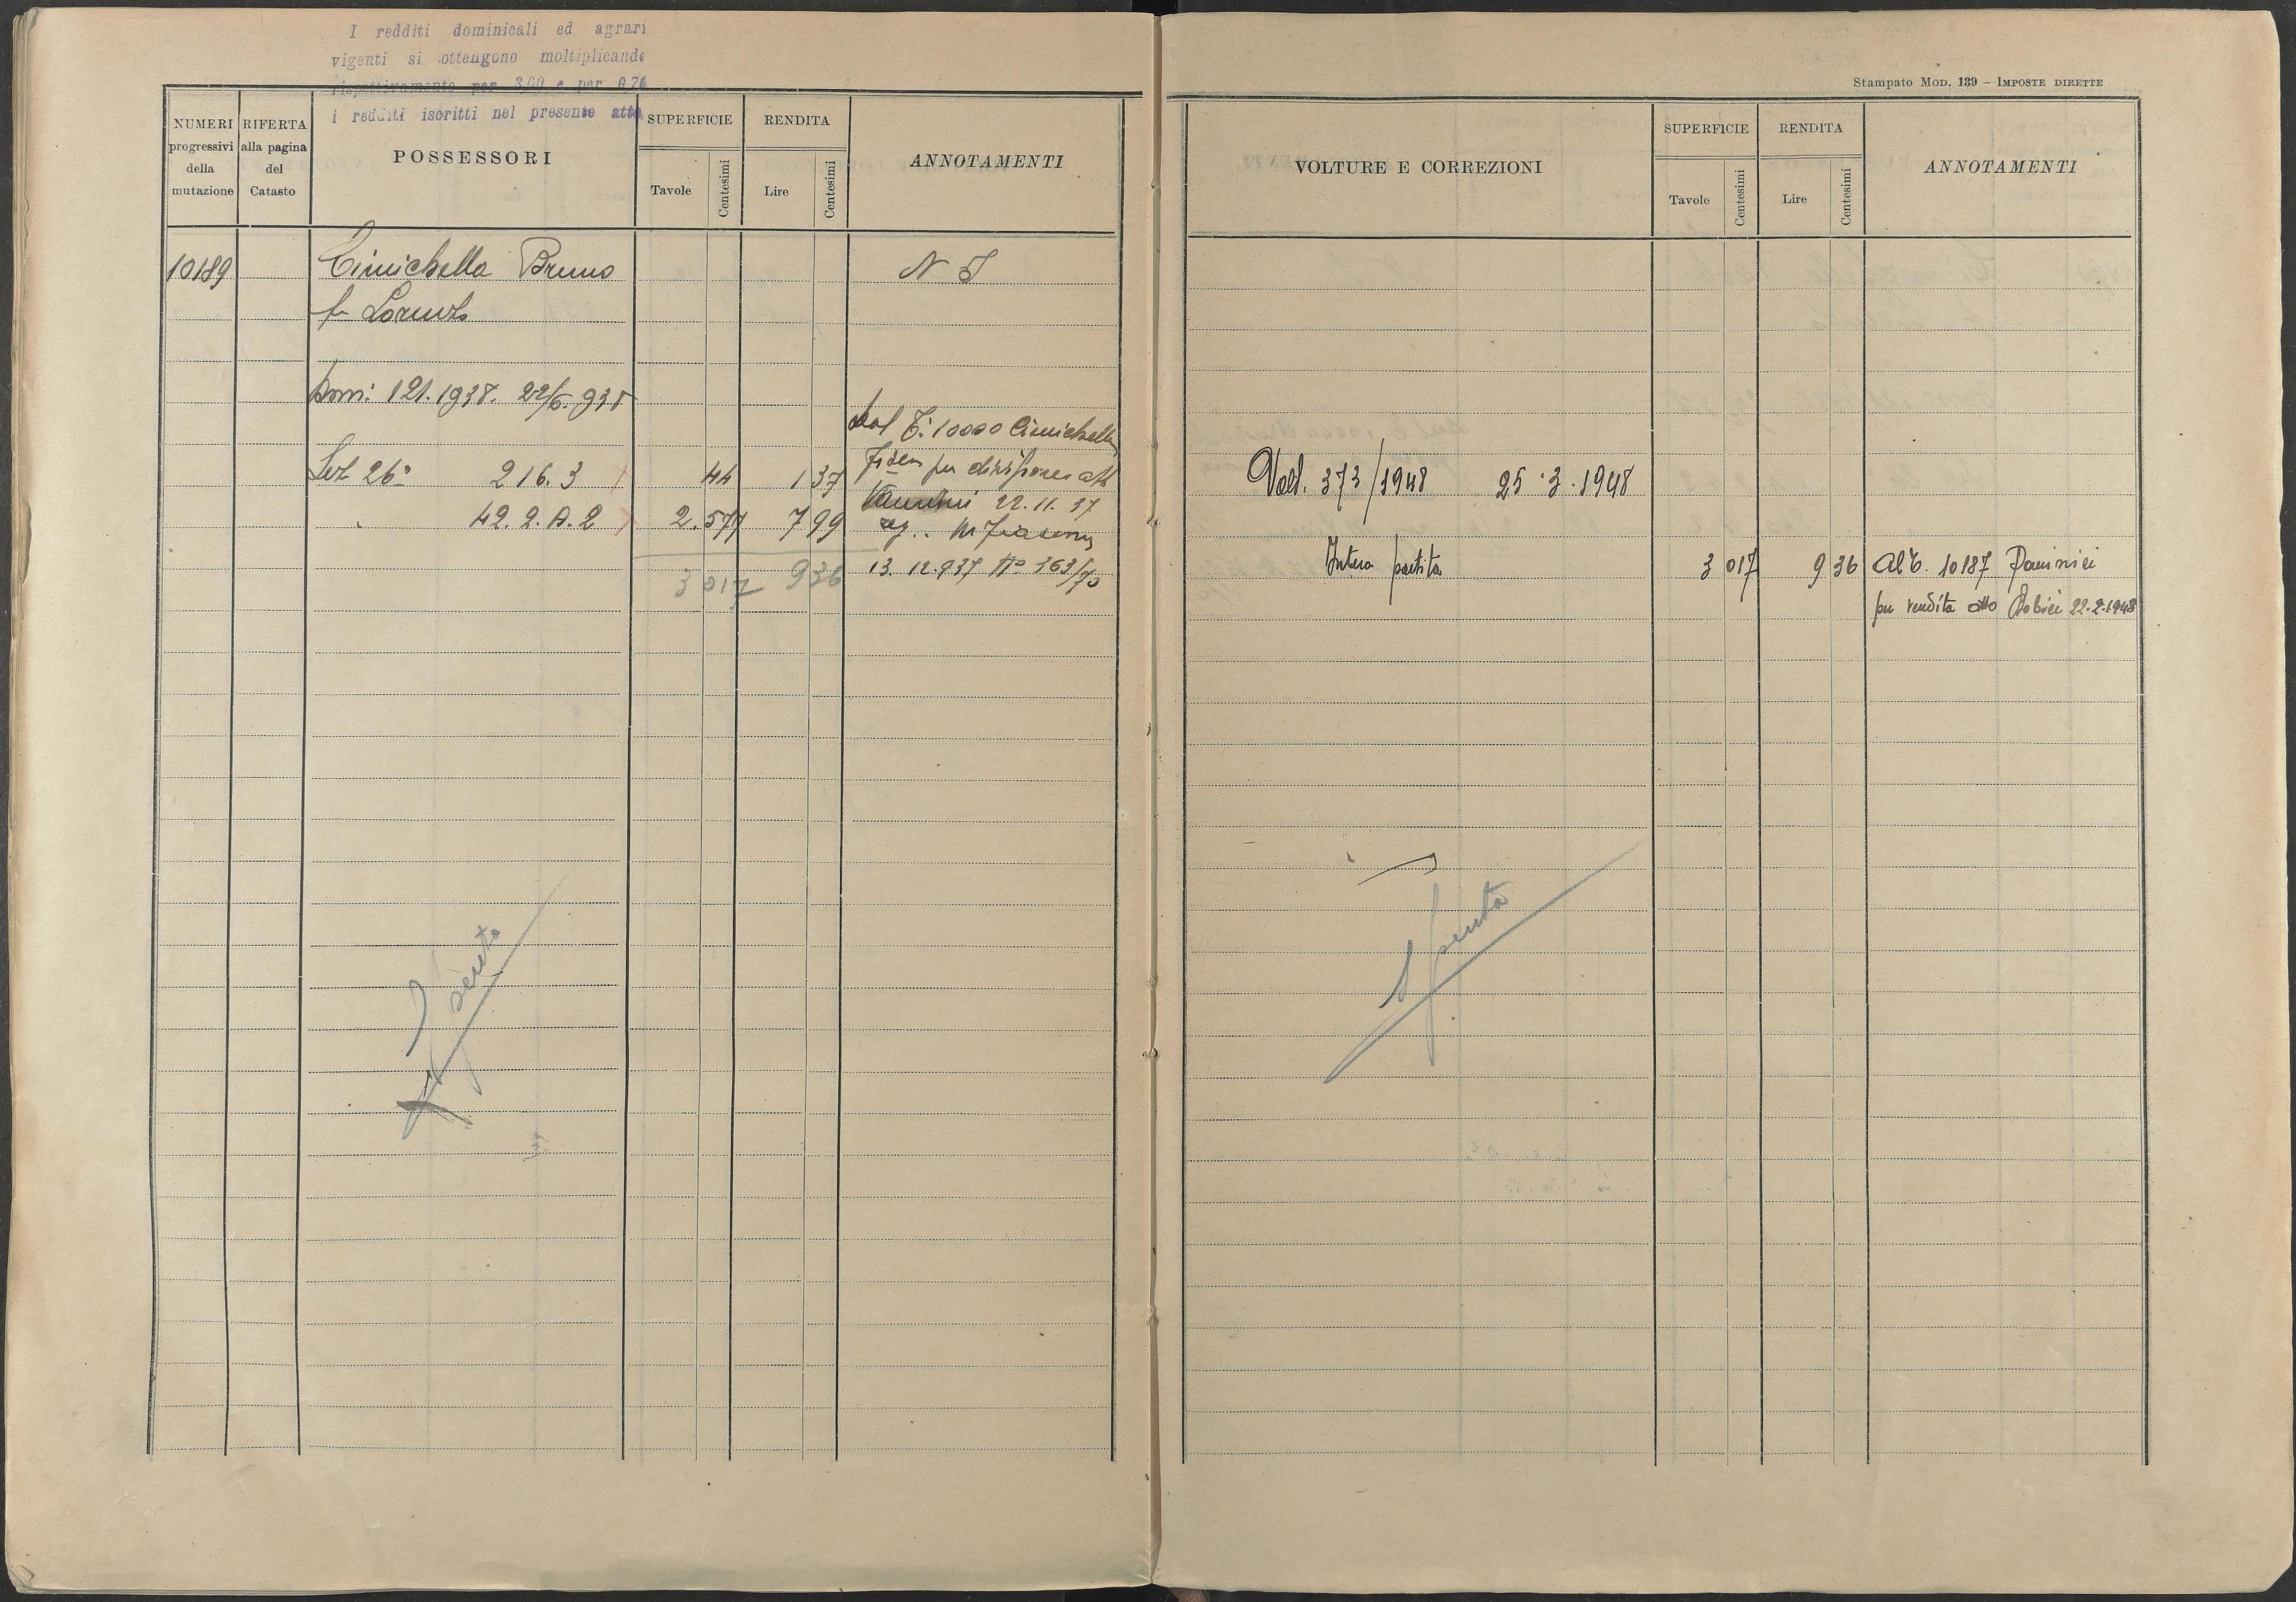 I redditi dominicali ed agrari
vigenti si ottengono moltiplicando
rispettivamente per 3,60 e per 0,70
i redditi iscritti nel presente atto
NUMERI progressivi della mutazione
RIFERTA alla pagina del Catasto
POSSESSORI
SUPERFICIE
Tavole Centesimi
RENDITA
Lire Centesimi
ANNOTAMENTI
10189 Cimichella Bruno N I
fu Lorenzo
121.1938. 22/6.938
Dal T: 10000 Cimichella
Sez 26ª 216.3 44 1 37
per divisione
42.2.A.2 2.577 7 99
22.11.37
3 017 9 36
13.12.937 Nº 363/70
Spenta
Stampato Mod. 139 – Imposte dirette
VOLTURE E CORREZIONI
SUPERFICIE
Tavole Centesimi
RENDITA
Lire Centesimi
ANNOTAMENTI
Volt. 373/1948 25.3.1948
Intera partita 3 017 9 36 Al T. 10187
per vendita atto 22.2.1948
Spenta